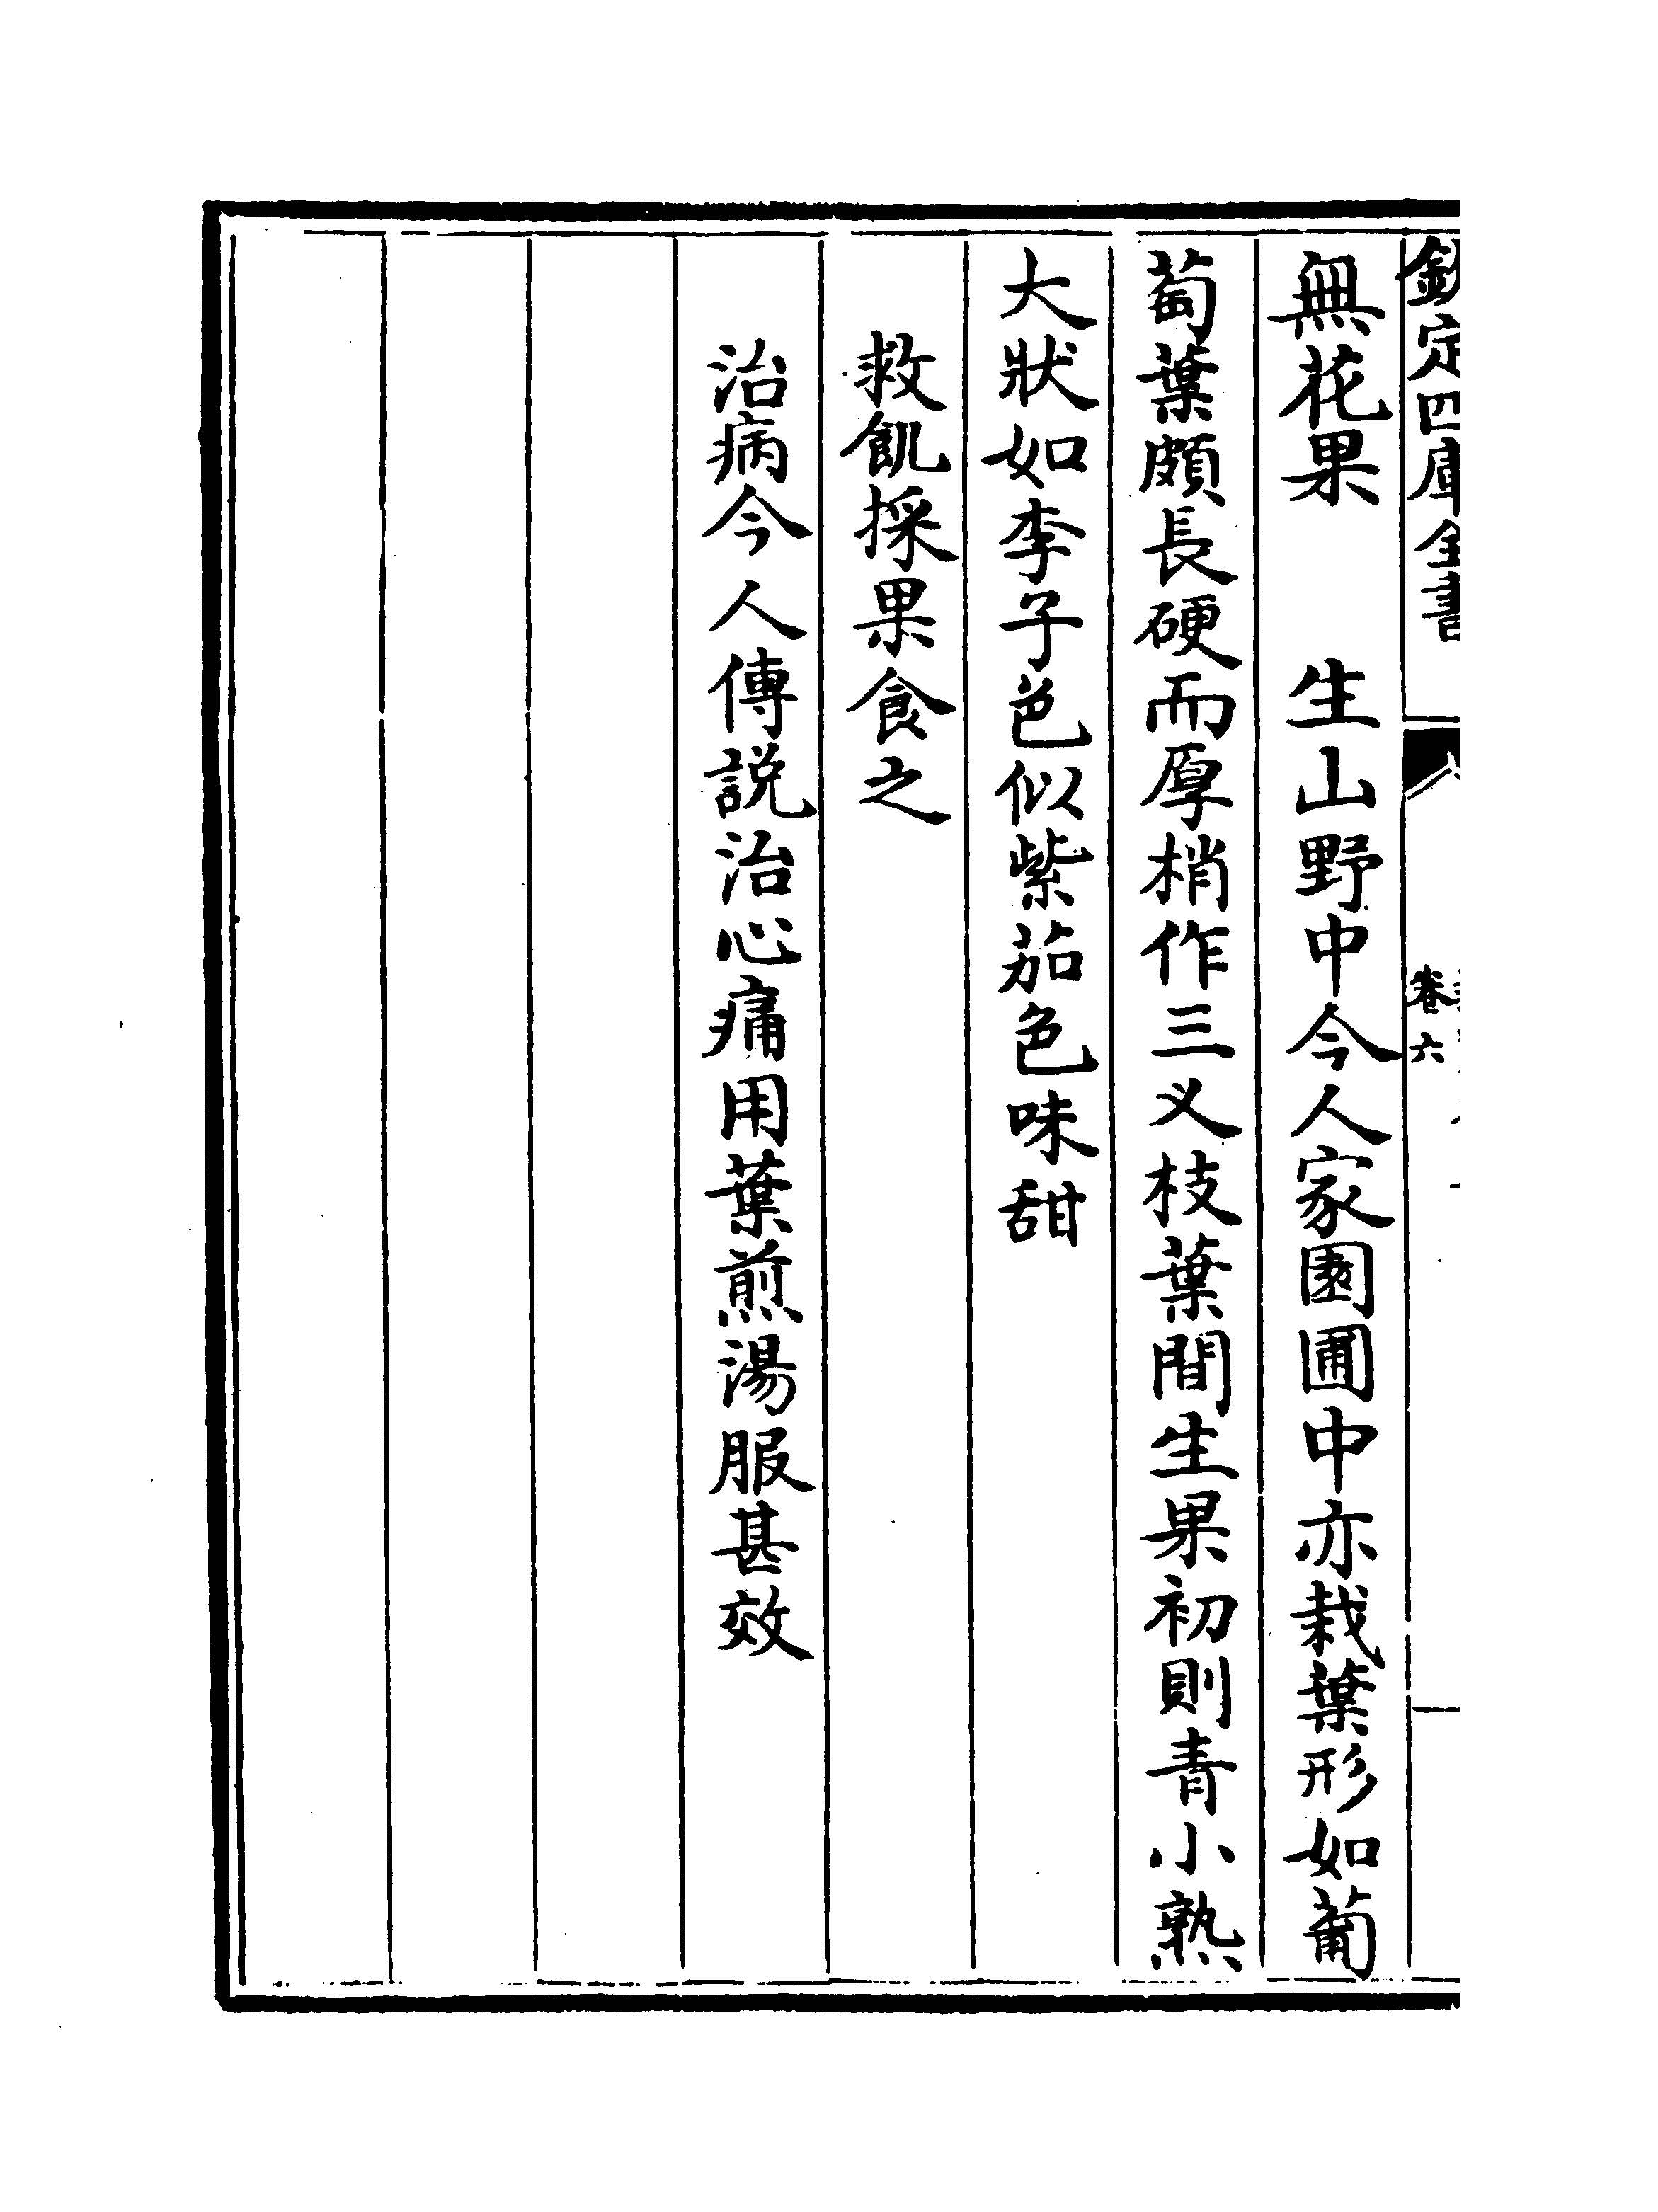 欽定四庫全書
卷六
無花果　生山野中今人家園圃中亦栽葉形如葡
萄葉頗長硬而厚梢作三叉枝葉間生果初則青小熟
大狀如李子色似紫茄色味甜
救飢採果食之
治病今人傳説治心痛用葉煎湯服甚效